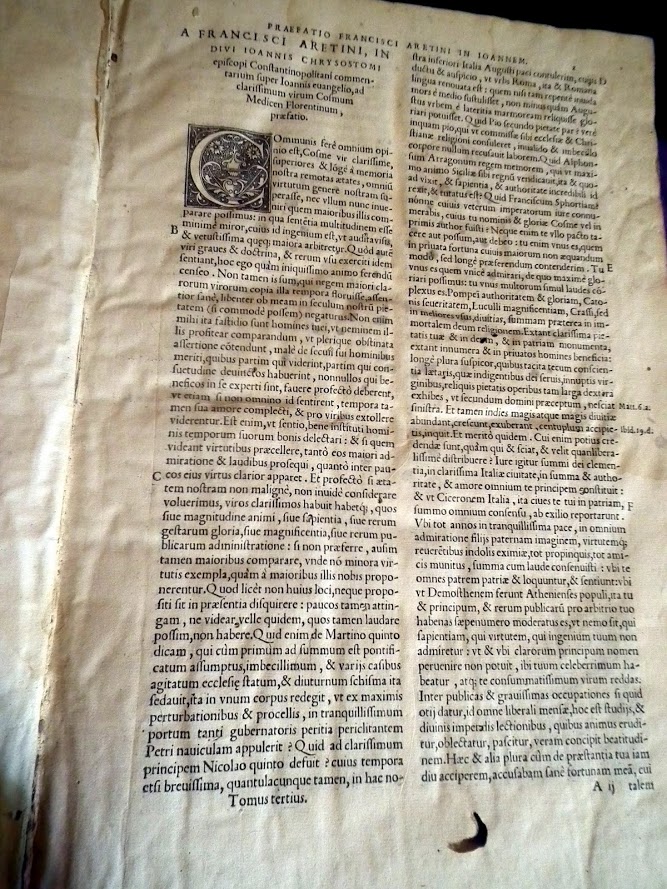 PRAEFATIO FRANCISCI ARETINI IN IOANNEM.
A FRANCISCI ARETINI, IN
DIVI IOANNIS CHRYSOSTOMI
episcopi Constantinopolitani commen-
tarium super Ioannis euangelio, ad
clarissimum virum Cosmum
Medicen Florentinum,
præfatio.
COmmunis ferè omnium opi-
nio est, Cosme vir clarissime,
superiores & lōgè à memoria
nostra remotas ætates, omniū
virtutum genere nostram su-
perasse, nec vllum nunc inue-
niri quem maioribus illis com-
parare possimus: in qua sentētia multitudinem esse
minimè miror, cuius id ingenium est, vt audita visis,
B & vetustissima quęq; maiora arbitretur. Quòd autē
viri graues & doctrina, & rerum vsu exerciti idem
sentiant, hoc ego quàm iniquissimo animo ferendū
censeo. Non tamen is sum, qui negem maiori cla-
rorum virorum copia illa tempora floruisse, assen-
tior sanè, libenter ob meam in seculum nostrū pie-
tatem (si commodè possem) negaturus. Non enim
mihi ita fastidio sunt homines huci, vt neminem il-
lis profitear comparandum, vt plerique obstinata
assertione cōtendunt, malè de seculi sui hominibus
meriti, quibus partim qui viderint, partim qui con-
suetudine deuinctos habuerint, nonnullos qui be-
neficos in se experti sint, fauere profectò deberent,
vt etiam si non omnino id sentirent, tempora ta-
men sua amore complecti, & pro viribus extollere
viderentur. Est enim, vt sentio, bene instituti homi-
nis temporum suorum bonis delectari: & si quem
videant virtutibus præcellere, tantò eos maiori ad-
miratione & laudibus prosequi, quantò inter pau-
C cos eius virtus clarior apparet. Et profectò si æta-
tem nostram non malignè, non inuidè considerare
voluerimus, viros clarissimos habuit habetq́;, quos
siue magnitudine animi, siue sapientia, siue rerum
gestarum gloria, siue magnificentia, siue rerum pu-
blicarum administratione: si non præferre, ausim
tamen maioribus comparare, vnde nō minora vir-
tutis exempla, quàm à maioribus illis nobis propo-
nerentur. Quod licèt non huius loci, neque propo-
siti sit in præsentia disquirere: paucos tamen attin-
gam, ne videar velle quidem, quos tamen laudare
possim, non habere. Quid enim de Martino quinto
dicam, qui cùm primum ad summum est pontifi-
catum assumptus, imbecillimum, & varijs casibus
agitatum ecclesię statum, & diuturnum schisma ita
sedauit, ita in vnum corpus redegit, vt ex maximis
perturbationibus & procellis, in tranquillissimum
portum tanti gubernatoris peritia periclitantem
Petri nauiculam appulerit? Quid ad clarissimum
principem Nicolao quinto defuit? cuius tempora
etsi breuissima, quantulacunque tamen, in hac no-
Tomus tertius.
stra inferiori Italia Augusti paci contulerim, cuius D
ductu & auspicio, vt vrbs Roma, ita & Romana
lingua renouata est: quem nisi tam repentè inuida
mors è medio sustulisset, non minus quàm Augu-
stus vrbem è lateritia marmoream reliquisse glo-
riari potuisset. Quid Pio secundo pietate par? verè
inquam pio, qui vt commissæ sibi ecclesiæ & Chri-
stianæ religioni consuleret, inualido & imbecillo
corpore nullum recusauit laborem. Quid Alphon-
sum Arragonum regem memorem, qui vt maxi-
mo animo Siciliæ sibi regnū vendicauit, ita & quo-
ad vixit, & sapientia, & authoritate incredibili id
rexit, & tutatus est? Quid Franciscum Sphortiam?
nónne cuiuis veterum imperatorum iure connu-
merabis, cuius tu nominis & gloriæ Cosme vel in
primis author fuisti? Neque enim te vllo pacto ta-
cere aut possum, aut debeo: tu enim vnus es, quem
in priuata fortuna cuiuis maiorum non æquandum
modò, sed longè præferendum contenderim. Tu E
vnus es quem vnicè admirari, de quo maximè glo-
riari possumus: tu vnus multorum simul laudes cō-
plexus es. Pompei authoritatem & gloriam, Cato-
nis seueritatem, Luculli magnificentiam, Crassi, sed
in meliores vsus, diuitias, summam præterea in im-
mortalem deum religionem. Extant clarissima pie-
tatis tuæ & in deum, & in patriam monumenta,
extant innumera & in priuatos homines beneficia:
longè plura suspicor, quibus tacita tecum conscien-
tia lætaris, quæ indigentibus dei seruis, innuptis vir-
ginibus, reliquis pietatis operibus tam larga dextera
exhibes, vt secundum domini præceptum, nesciat Matt. 6.a.
sinistra. Et tamen indies magis atque magis diuitiæ
abundant, crescunt, exuberant, centuplum accipie- Ibid. 19.d.
tis, inquit. Et meritò quidem. Cui enim potius cre-
dendæ sunt, quàm qui & sciat, & velit quàm libera-
lissimè distribuere? Iure igitur summi dei clemen-
tia, in clarissima Italiæ ciuitate, in summa & autho-
ritate, & amore omnium te principem constituit:
& vt Ciceronem Italia, ita ciues te tui in patriam, F
summo omnium consensu, ab exilio reportarunt.
Vbi tot annos in tranquillissima pace, in omnium
admiratione filijs paternam imaginem, virtutemq́;
reuerētibus indolis eximiæ, tot propinquis, tot ami-
cis munitus, summa cum laude consenuisti: vbi te
omnes patrem patriæ & loquuntur, & sentiunt: vbi
vt Demosthenem ferunt Athenienses populi, ita tu
& principum, & rerum publicarū pro arbitrio tuo
habenas sæpenumero moderatus es, vt nemo sit, qui
sapientiam, qui virtutem, qui ingenium tuum non
admiretur: vt & vbi clarorum principum nomen
peruenire non potuit, ibi tuum celeberrimum ha-
beatur, atq; te consummatissimum virum reddas.
Inter publicas & grauissimas occupationes si quid
otij datur, id omne liberali mensæ, hoc est studijs, &
diuinis imperalis lectionibus, quibus animus erudi-
tur, oblectatur, pascitur, veram concipit beatitudi-
nem. Hæc & alia plura cùm de præstantia tua iam
diu acciperem, accusabam sanè fortunam meā, cui
A ij talem